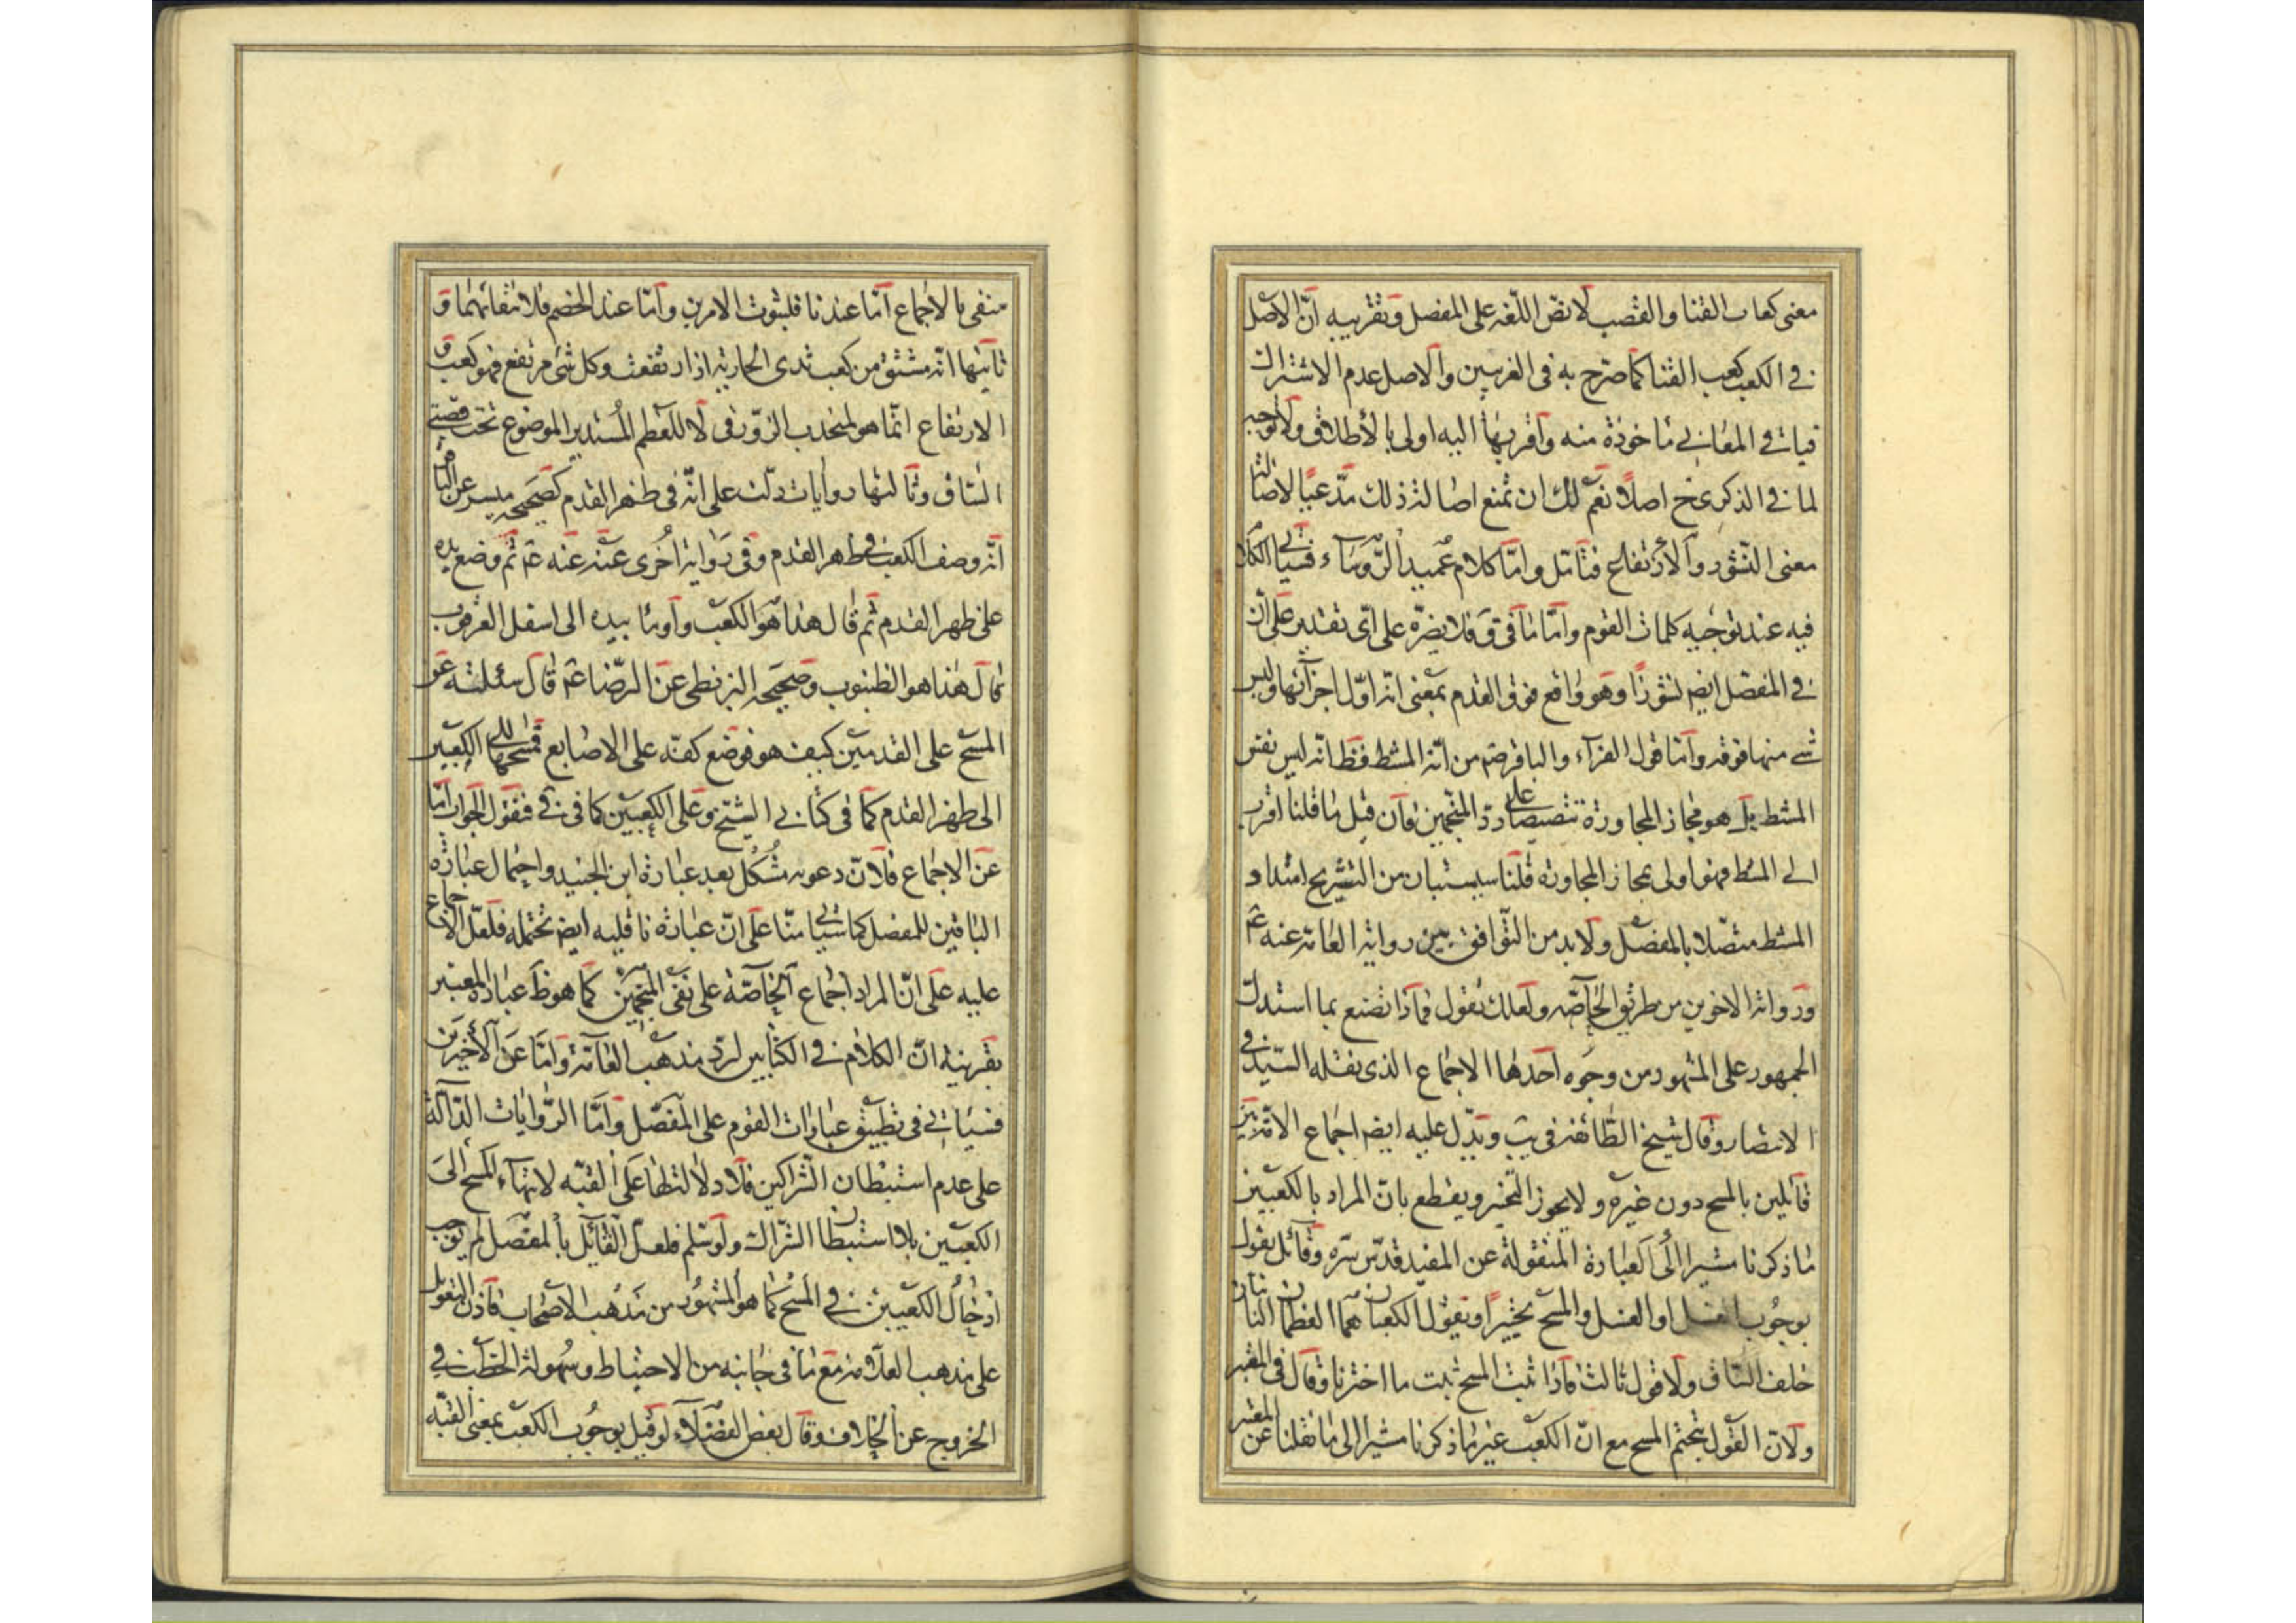 معنى كعاب القنا والقصب لا نص اللغة على المفصل وتقريبه ان الاصل
في الكعب كعب القنا كما صرح به في الغريبين والاصل عدم الاشتراك
المعاني ماخوذة منه واقربها اليه اولى بالاطلاق ولا توجيه
لما في الذكرى ح اصلا نعم لك ان تمنع اصالة ذلك مدعيا لاصالة
معنى النشوز والارتفاع فتامل واما كلام عميد الرؤساء فسياتي الكلام
فيه عند توجيه كلمات القوم واما ما في ق فلا يضره على اى تقدير على ان
في المفصل ايض نشوزا وهو واقع فوق القدم بمعنى انه اول اجزائها وليس
شئ منها فوقه واما قول الفراء والباقر ص من انه المشط فظ انه ليس نفس
المشط بل هو مجاز المجاورة تنصيصا على رد المنجمين فان قيل ما قلنا اقرب
الى المشط فهو اولى بمجاز المجاورة قلنا سيستبان من التشريح امتداد
المشط متصلا بالمفصل ولا بد من التوافق بين رواية العامة عنه ع
ورواية الاخوين من طريق الخاصه ولعلك تقول فماذا تصنع بما استدل
الجمهور على المشهور من وجوه احدها الاجماع الذى نقله السيد في
الانتصار وقال شيخ الطائفة في يب ويدل عليه ايض اجماع الامة بين
قائلين بالمسح دون غيره ولا يجوز التخير ويقطع بان المراد بالكعبين
ما ذكرنا مشيرا الى العبارة المنقولة عن المفيد قدس سره وقائل يقول
بوجوب الغسل او الغسل والمسح تخييرا ويقول الكعبان هما العظمان الناتيان
خلف الساق ولا قول ثالث فاذا ثبت المسح ثبت ما اخترنا وقال في المعتبر
ولان القول بتحتم المسح مع ان الكعب غير ما ذكرنا مشيرا الى ما نقلنا عن المعتبر
منفى بالاجماع اما عندنا فلثبوت الامرين واما عند الخصم فلانتفائهما و
ثانيها انه مشتق من كعب ثدى الجارية اذا ارتفعت وكل شئ مرتفع فهو كعب و
الارتفاع انما هو لمنحدب الزورقى لا للعظم المستدير الموضوع تحت قصبتى
الساق وثالثها روايات دلت على انه في ظهر القدم كصحيحة ميسر عن الباقر
انه وصف الكعب في ظهر القدم وفي رواية اخرى عنه عنه ع ثم وضع يده
على ظهر القدم ثم قال هذا هو الكعب واومأ بيده الى اسفل العرقوب
ثم قال هذا هو الظنبوب وصحيحة البزنطى عن الرضا ع قال سئلته عن
المسح على القدمين كيف هو فوضع كفه على الاصابع فمسحها الى الكعبين
الى ظهر القدم كما في كتابى الشيخ وعلى الكعبين كما في في فنقول الجواب اما
عن الاجماع فلان دعويه مشكل بعد عبارة ابن الجنيد واحتمال عبارة
الباقين للمفصل كما سياتي منا على ان عبارة ناقليه ايض تحتمله فلعل الاجماع
عليه على ان المراد اجماع الخاصة على نفى المنجمين كما هو ظ عبارة المعتبر
بقرينة ان الكلام في الكتابين لرد مذهب العامة واما عن الاخيرين
فسياتى في تطبيق عبارات القوم على المفصل واما الروايات الدالة
على عدم استبطان الشراكين فلا دلالة لها على القبه لانتهاء المسح الى
الكعبين بلا استبطان الشراك ولو سلم فلعل القائل بالمفصل لم يوجب
ادخال الكعبين في المسح كما هو المشهور من مذهب الاصحاب فاذن التعويل
على مذهب العلامة مع ما في جانبه من الاحتياط وسهولة الخطب في
الخروج عن الخلاف وقال بعض الفضلاء لو قيل بوجوب الكعب بمعنى القبه